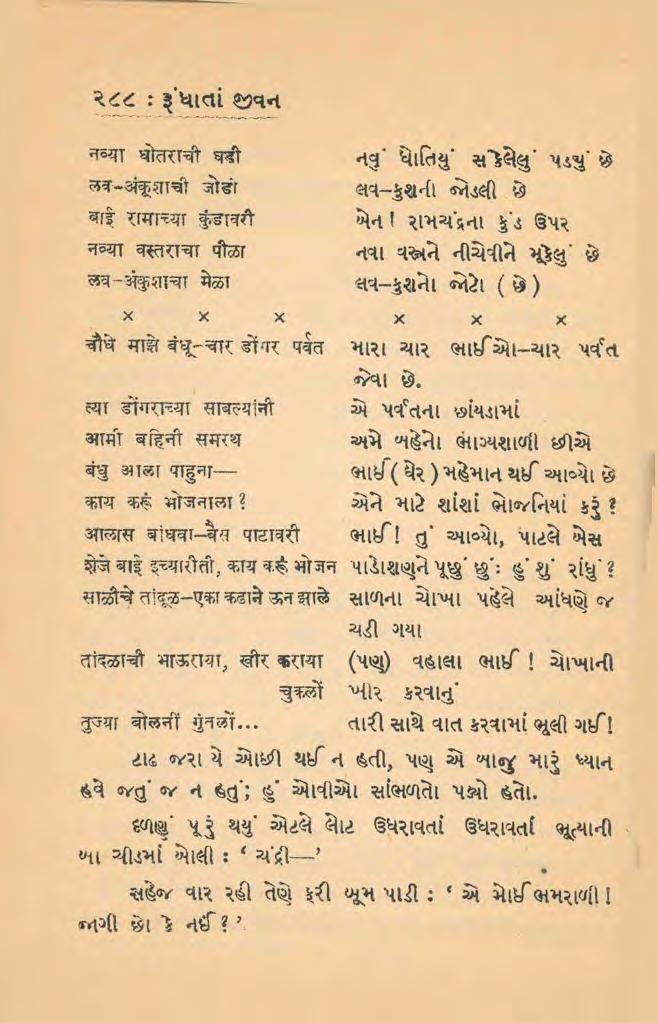 ૨૮૮ : રૂંધાતાં જીવન
नव्या घोतराची घडी નવું ધોતિયું સંકેલેલું પડ્યું છે
लव-अंकूशाची जोडी લવ-કુશની જોડલી છે
बाई रामाच्या कुंडावरी બેન! રામચંદ્રના કુંડ ઉપર
नव्या वस्तराचा पीळा નવા વસ્ત્રને નીચોવીને મૂકેલું છે
लव-अंकुशाचा मेळा લવ-કુશનો જોટો ( છે )
× × × × × ×
चौघे माझे बंधू-चार डोंगर पर्वत મારા ચાર ભાઈઓ-ચાર પર્વત
જેવા છે.
त्या डोंगराच्या सावल्यांनी એ પર્વતના છાંયડામાં
आमी बहिनी समरथ અમે બહેનો ભાગ્યશાળી છીએ
बंधु आला पाहुना— ભાઈ ( ઘેર ) મહેમાન થઈ આવ્યો છે
काय करूं भोजनाला ? એને માટે શાંશાં ભોજનિયાં કરું ?
आलास बांधवा-बैस पाटावरी ભાઈ! તું આવ્યો, પાટલે બેસ
शेजे बाई इच्यारीती, काय करूं भोजन પાડોશણને પૂછું છું: હું શું રાંધું ?
साळीचे तांदूळ-एका कढाने ऊन झाले સાળના ચોખા પહેલે આંધણે જ
ચડી ગયા
तांदळाची भाऊराया, खीर कराया (પણ) વહાલા ભાઈ ! ચોખાની
चुकलों ખીર કરવાનું
तुज्या बोलनीं गुंतलों... તારી સાથે વાત કરવામાં ભૂલી ગઈ!
ટાઢ જરા યે ઓછી થઈ ન હતી, પણ એ બાજુ મારું ધ્યાન
હવે જતું જ ન હતું; હું ઓવીઓ સાંભળતો પડ્યો હતો.
દળણું પૂરું થયું એટલે લોટ ઉધરાવતાં ઉધરાવતાં ભૂત્યાની
બા ચીડમાં બોલી : ‘ ચંદ્રી—’
સહેજ વાર રહી તેણે ફરી બૂમ પાડી : ‘ એ મોઈ ભમરાળી!
જાગી છો કે નઈ ? ’